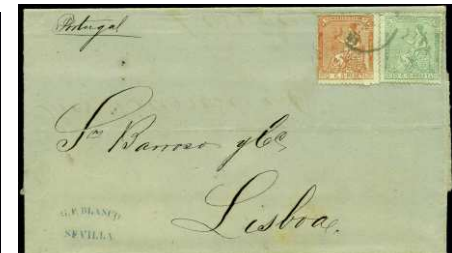 Portugal
Sres Barroso y Ca
Lisboa.
G. P. BLASCO
SEVILLA